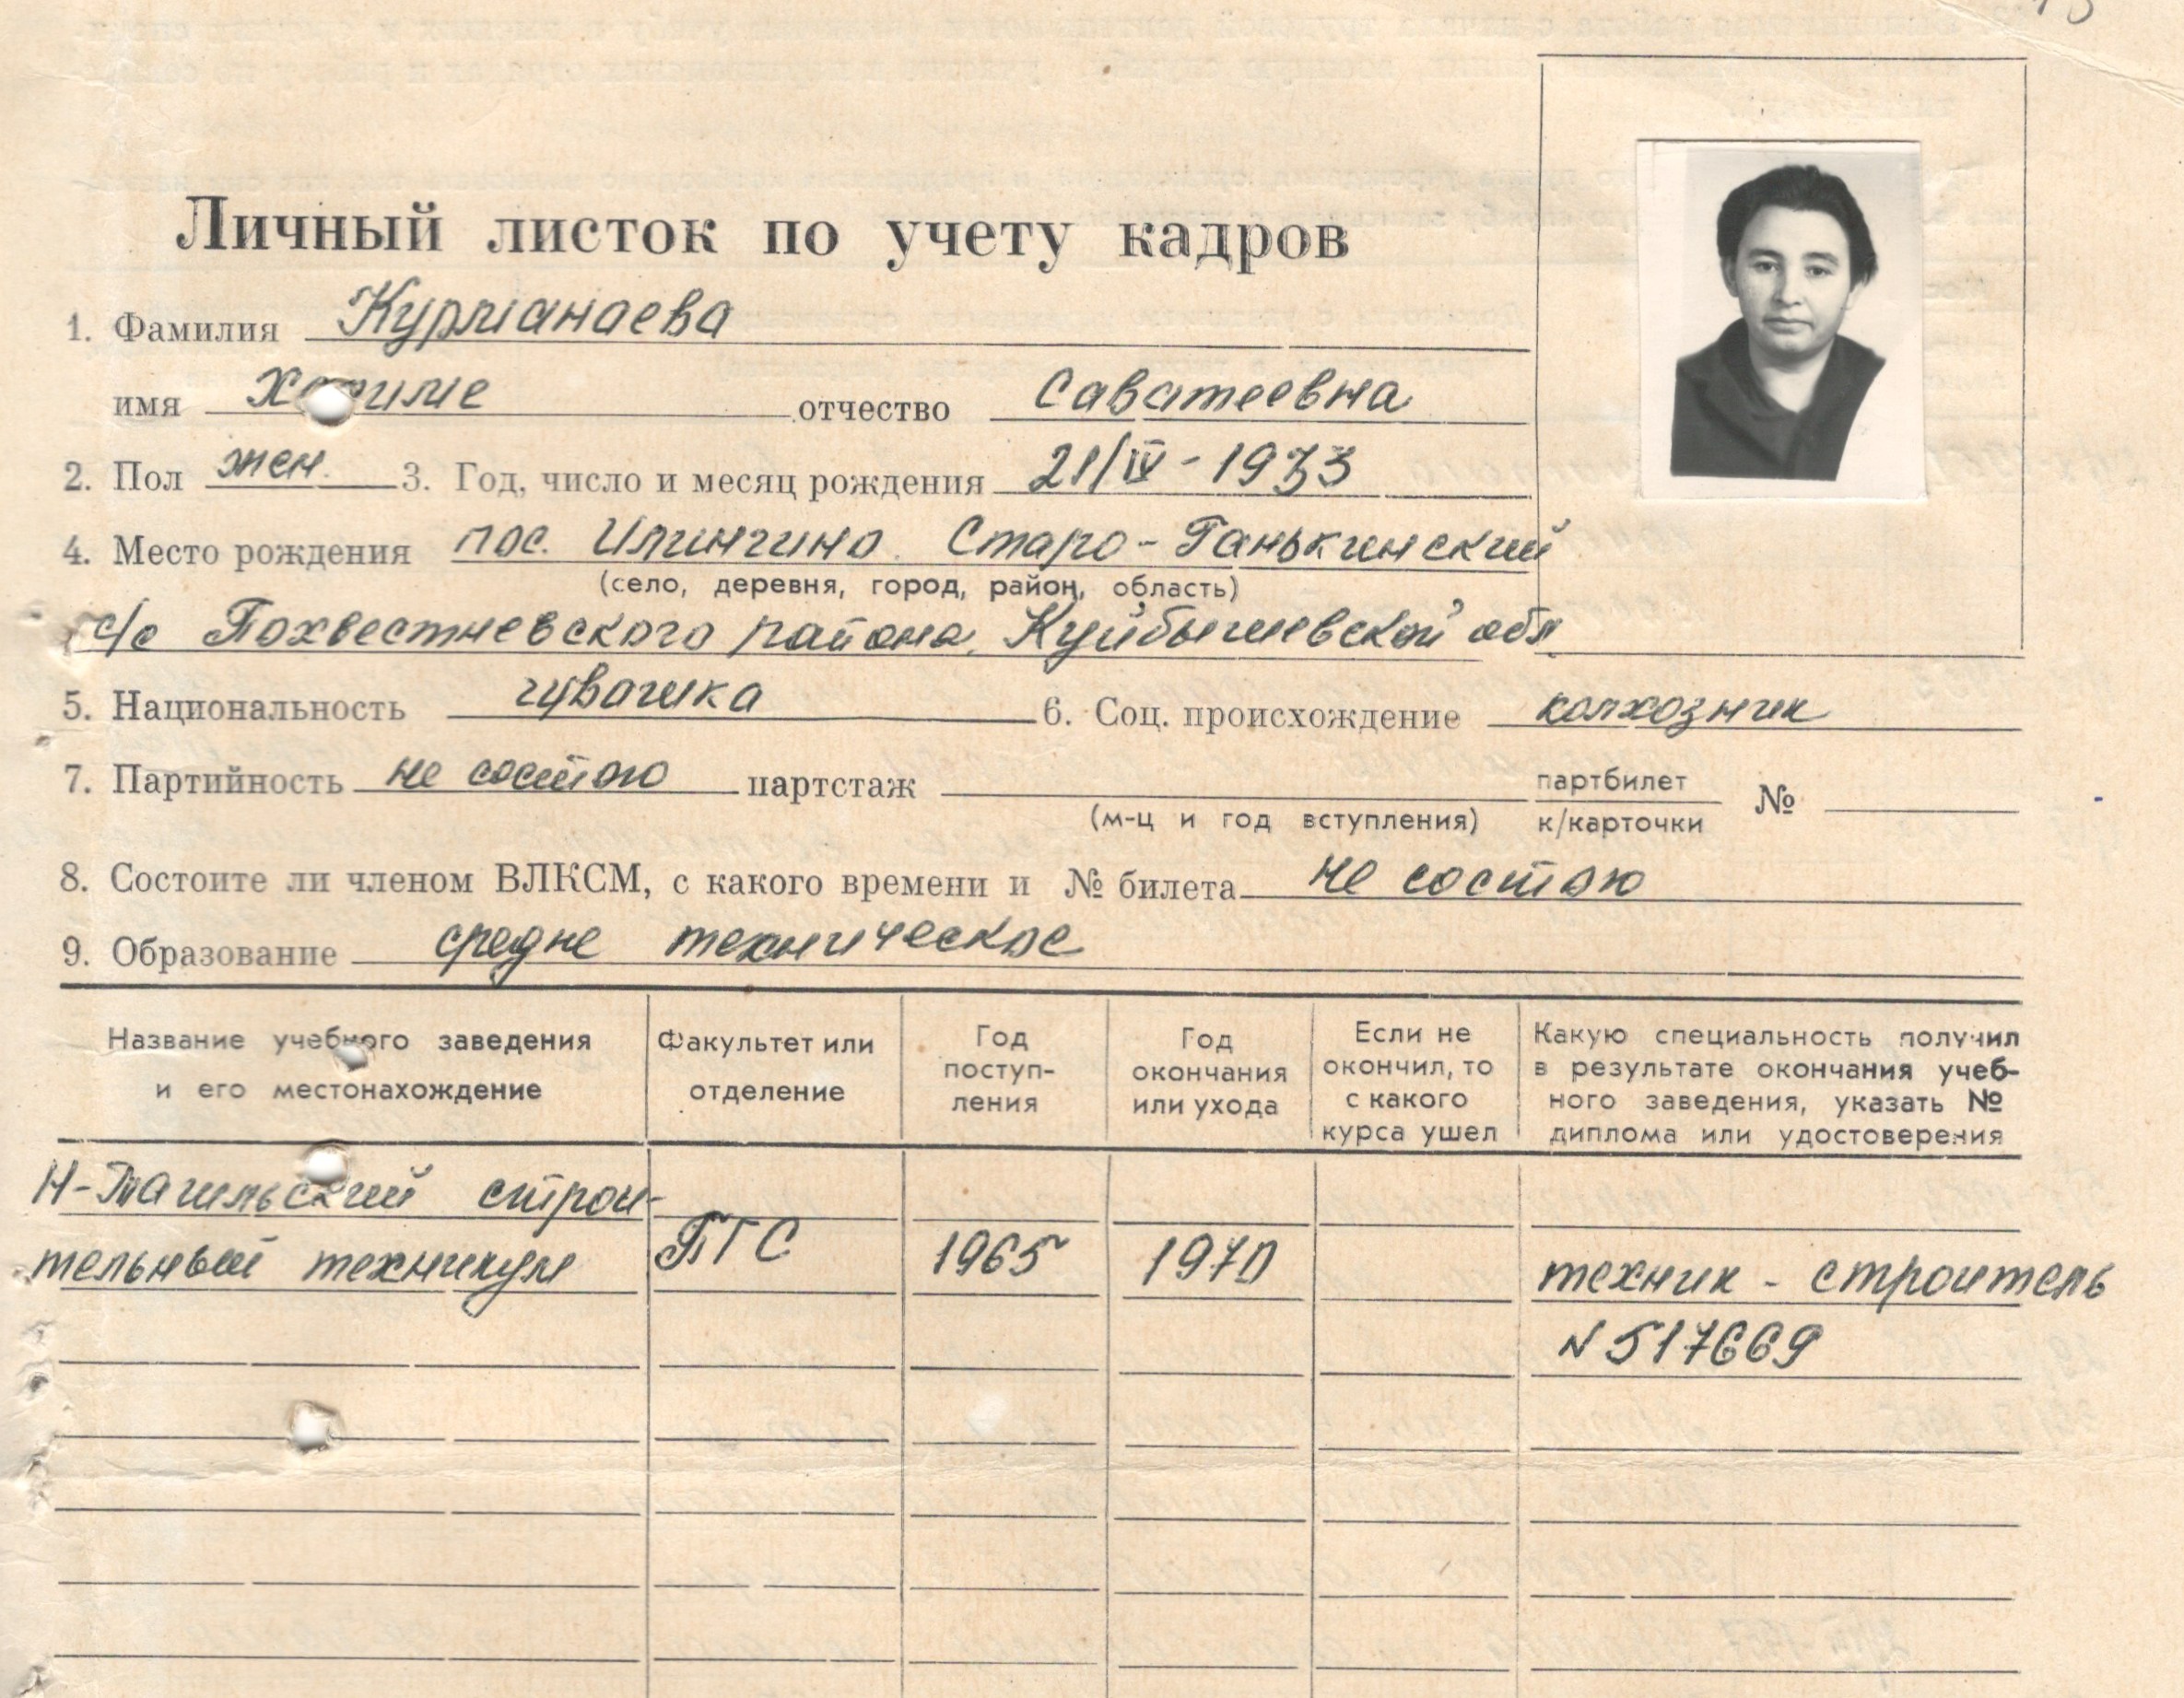 Личный листок по учету кадров
1. Фамилия Курманаева
имя отчество Саватеевна
2. Пол жен. 3. Год, число и месяц рождения 21/IV - 1933
4. Место рождения пос. Старо-Ганькинский
(село, деревня, город, район, область)
с/с Похвестневского района, Куйбышевской обл.
5. Национальность чувашка 6. Соц. происхождение колхозник
7. Партийность не состою партстаж партбилет №
(м-ц и год вступления) к/карточки
8. Состоите ли членом ВЛКСМ, с какого времени и № билета не состою
9. Образование средне техническое
Название учебного заведения и его местонахождение
Факультет или отделение
Год поступ-
ления
Год окончания или ухода
Если не окончил, то с какого курса ушел
Какую специальность получил
в результате окончания учеб-
ного заведения, указать №
диплома или удостоверения
Н-Тагильский строи-
тельный техникум ПГС 1965 1970 техник - строитель
N 517669